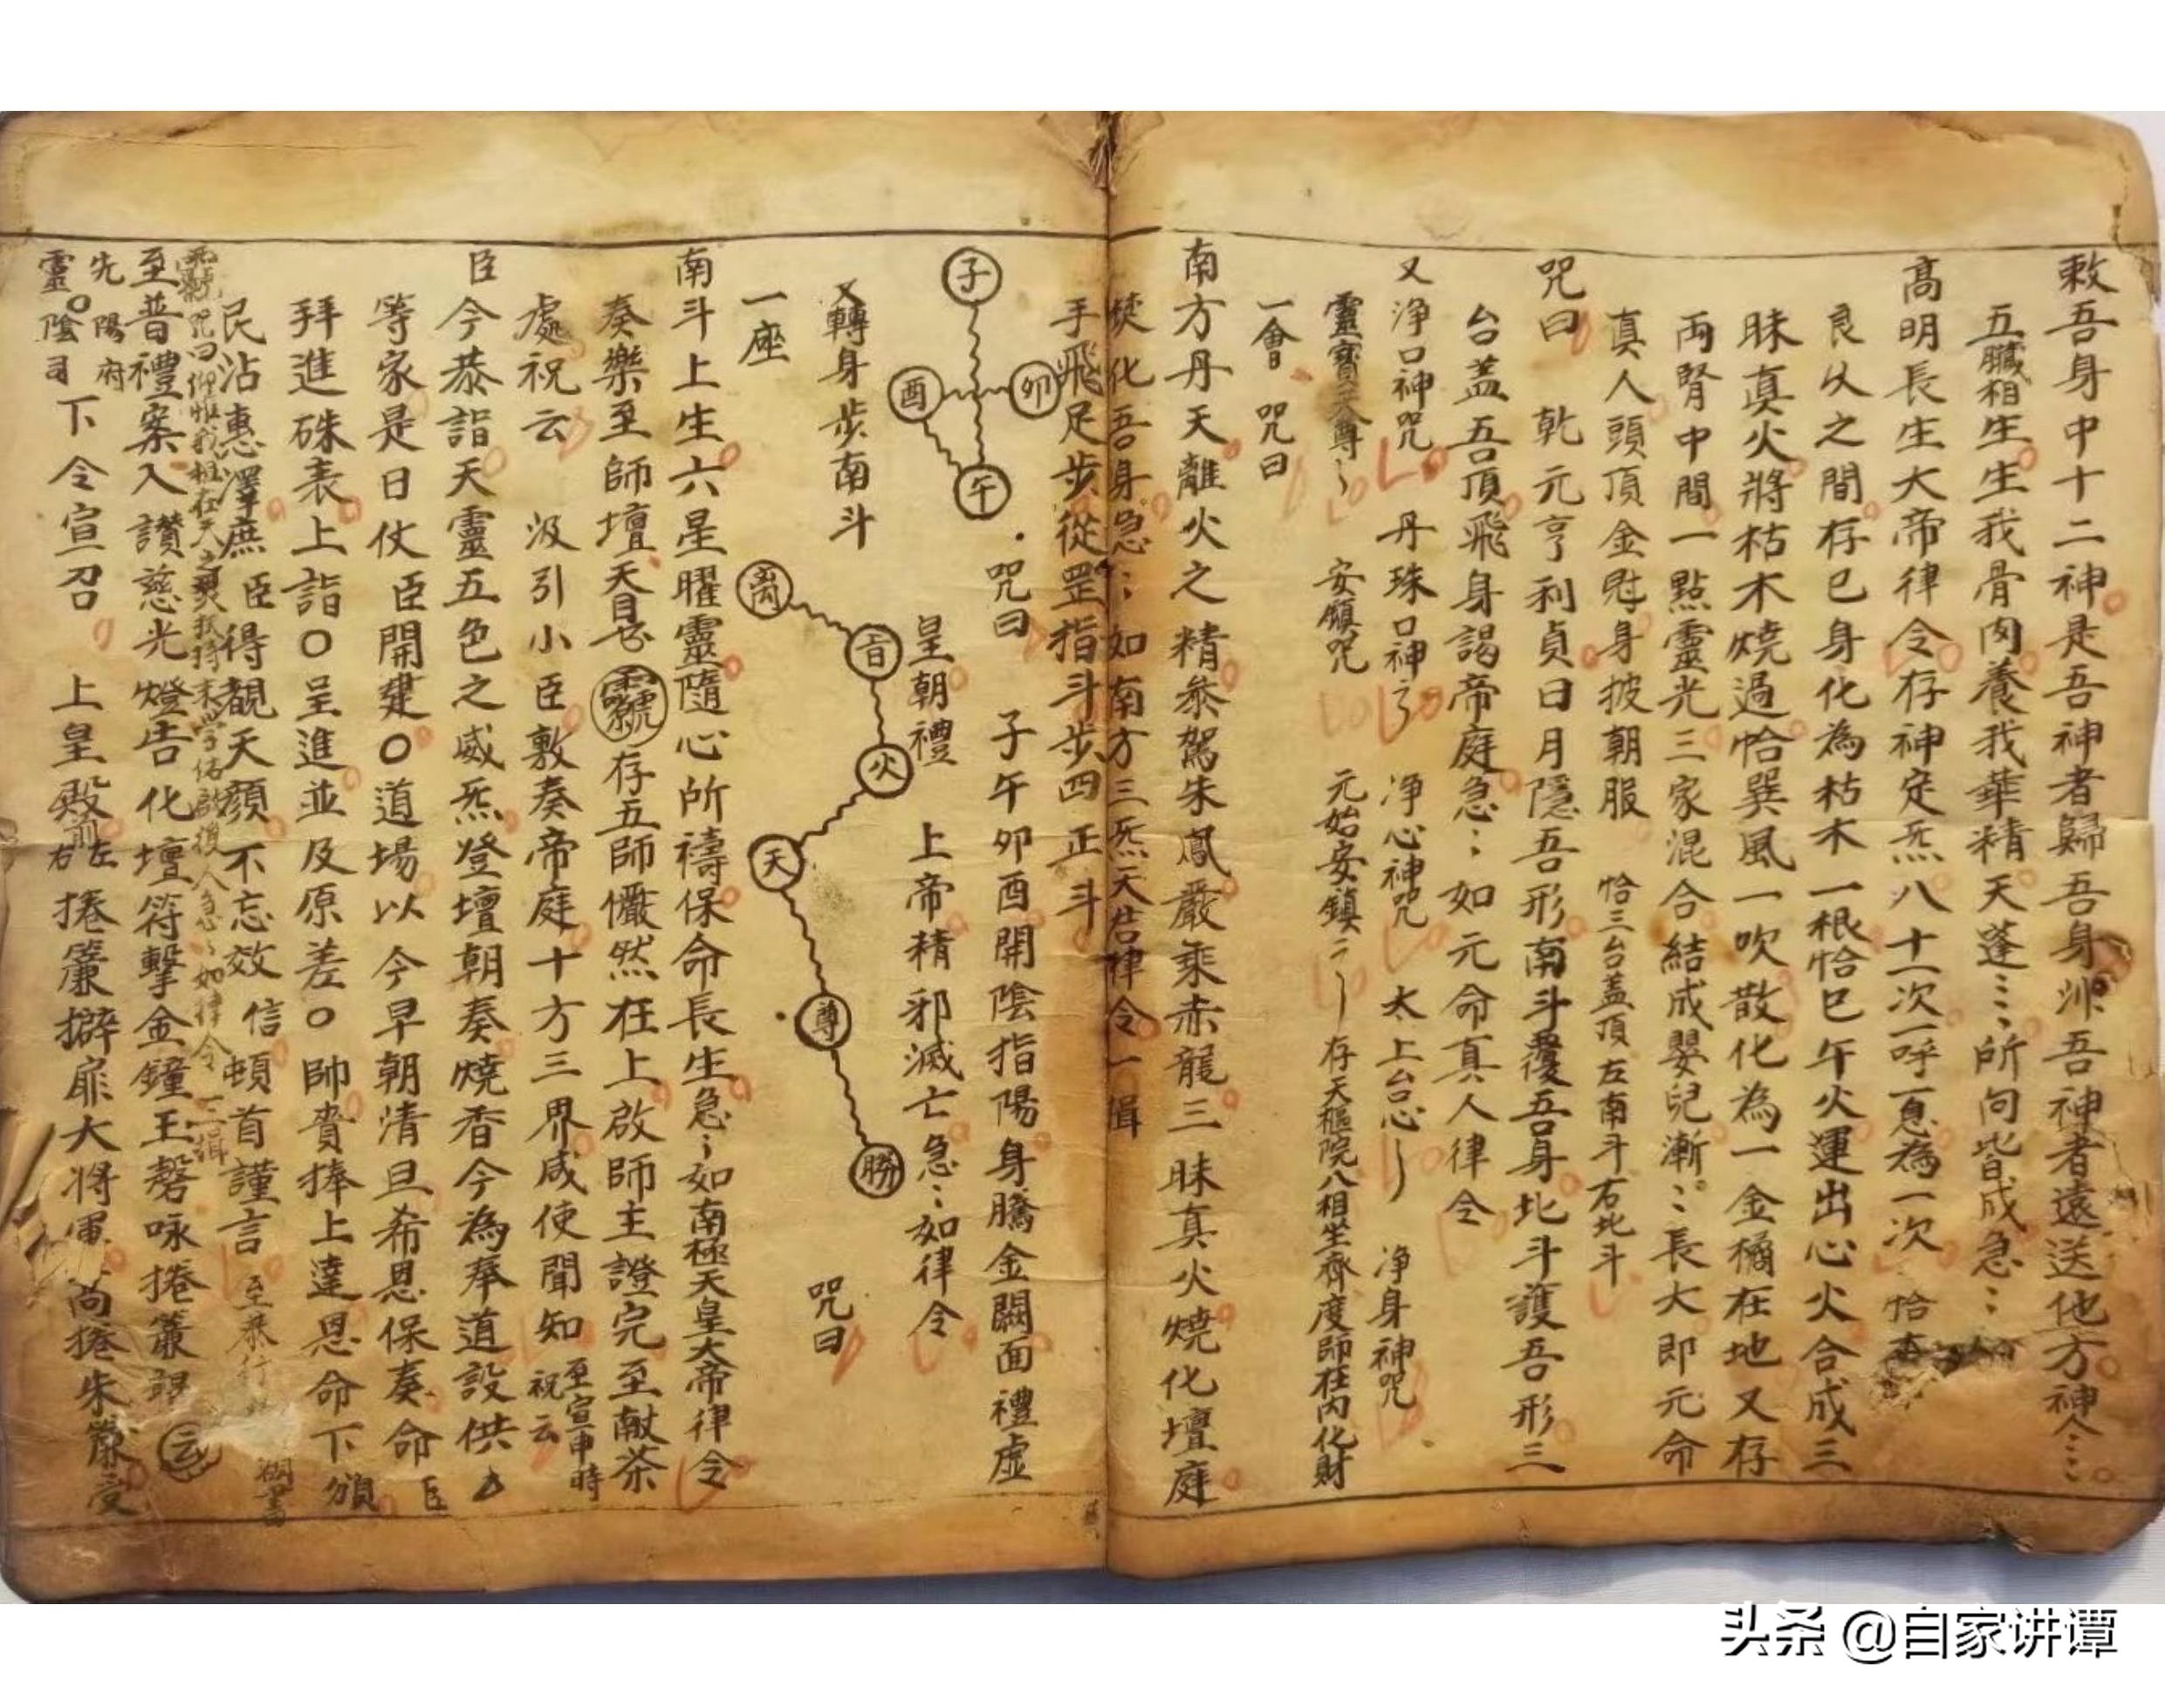 敕吾身中十二神是吾神者歸吾身非吾神者遠送他方神人〻〻
五臟相生生我骨肉養我華精天蓬〻〻所向皆成急〻
高明長生大帝律令存神定炁八十一次一呼一息為一次 恰
良久之間存已身化為枯木一根恰巳午火運出心火合成三
昧真火將枯木燒過恰巽風一吹散化為一金橘在地又存
両腎中間一點靈光三家混合結成嬰兒漸〻長大即元命
真人頭頂金冠身披朝服 恰三台蓋頂左南斗右北斗
咒曰 乾元亨利貞日月隱吾形南斗覆吾身北斗護吾形三
台蓋吾頂飛身謁帝庭急〻如元命真人律令
又浄口神咒 丹珠口神〻 浄心神咒 太上台心〻 浄身神咒
靈寶天尊〻 安鎮咒 元始安鎮〻〻 存天樞院八相坐齊度師在内化財
一會 咒曰
南方丹天離火之精叅駕朱鳳嚴乘赤龍三昧真火燒化壇庭
焚化吾身急〻如南方三炁天君律令一揖
手飛足步從罡指斗步四正斗
子
卯
酉
午
咒曰 子午卯酉開陰指陽身騰金闕面禮虛
皇朝禮 上帝精邪滅亡急〻如律令
又轉身步南斗 咒曰
离
音
火
天
尊
勝
一座
南斗上生六星曜靈隨心所禱保命長生急〻如南極天皇大帝律令
奏樂至師壇 存五師儼然在上啟師主證完至献茶
處祝云 汲引小臣敷奏帝庭十方三界咸使聞知 至宣申時祝云
臣今恭詣天靈五色之威炁登壇朝奏燒香今為奉道設供
等家是日仗臣開建〇道場以今早朝清旦希恩保奏命臣
拜進硃表上詣〇呈進並及原差〇帥賫捧上達恩命下頒
民沾惠澤庶臣得覩天顏不忘效信頓首謹言
咒曰仰惟我祖在天之靈扶持末学佑啟後人急〻如律令一揖
至普禮案入讚慈光燈告化壇符擊金鐘玉磬咏捲簾 云
先陽府
靈〇陰司 下令宣召 上皇殿前左右捲簾擗扉大將軍尚捲朱簾受
头条 @自家讲谭